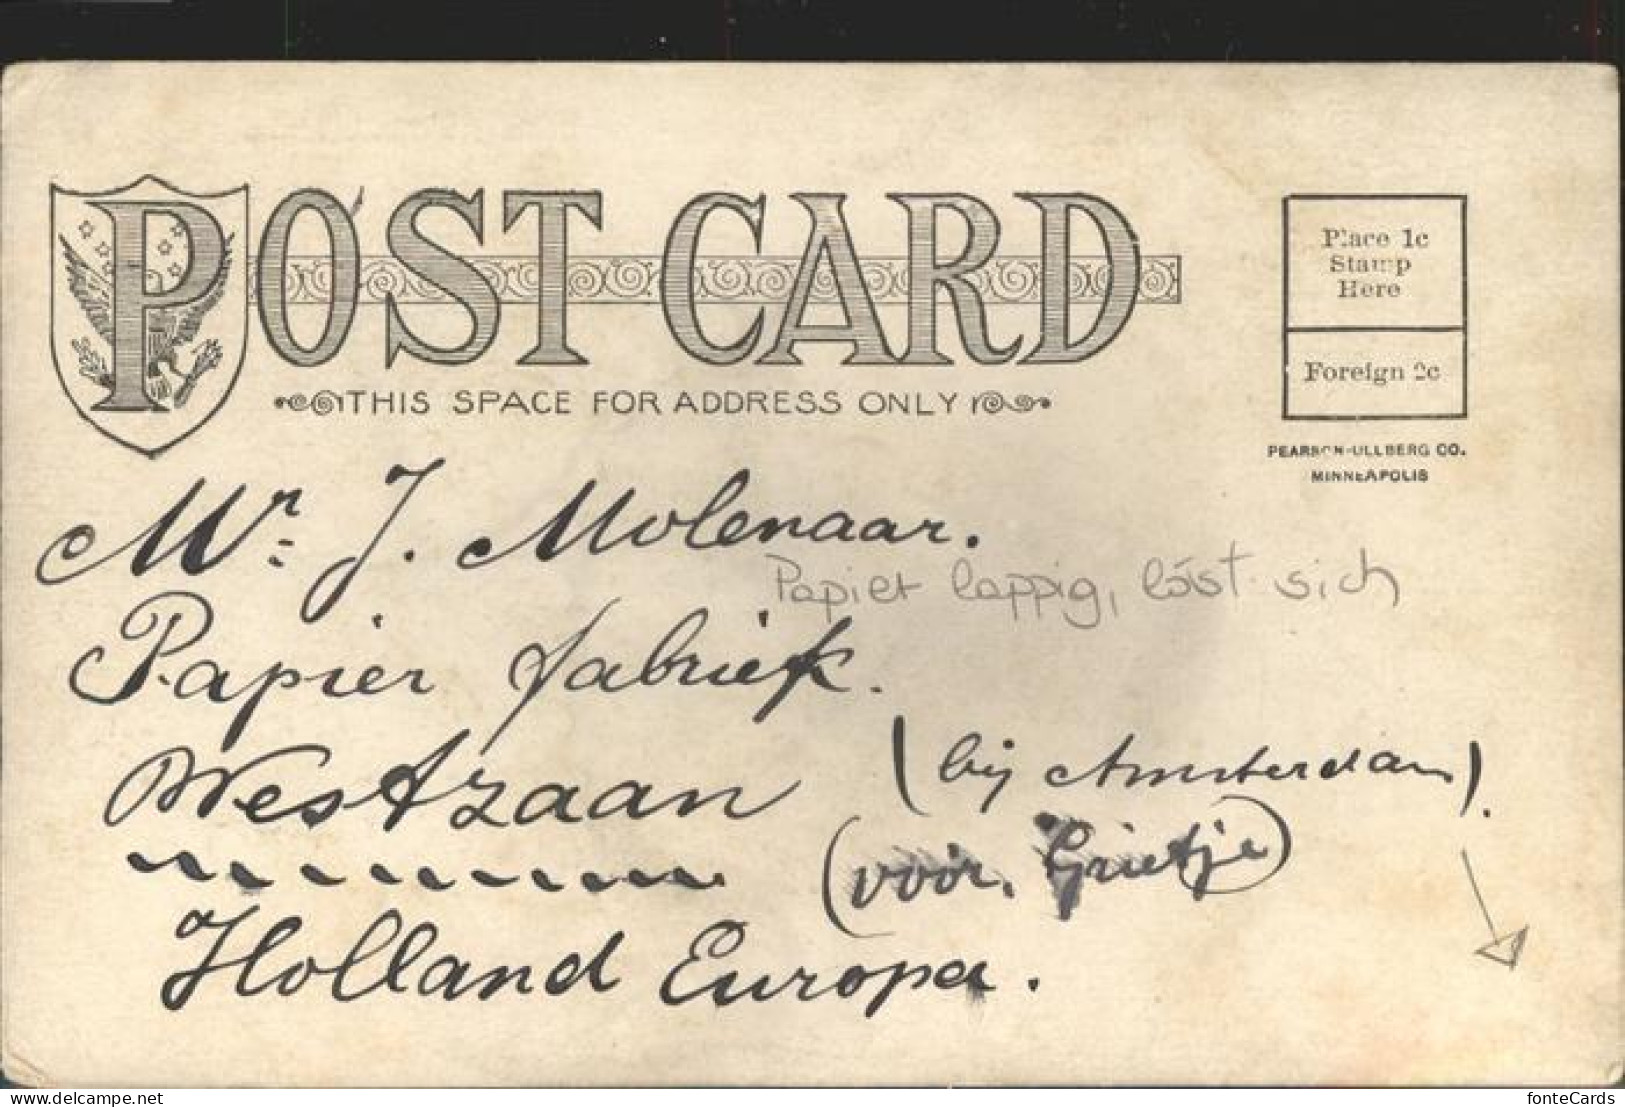 POST CARD
THIS SPACE FOR ADDRESS ONLY
Place 1c
Stamp
Here
Foreign 2c
PEARSON-ULLBERG CO.
MINNEAPOLIS
Mr. J. Molenaar.
Papier lappig, löst sich
Papier fabriek.
Westzaan (bij Amsterdam).
(voor. Grietje)
Holland Europa.
delcampe.net
fonteCards